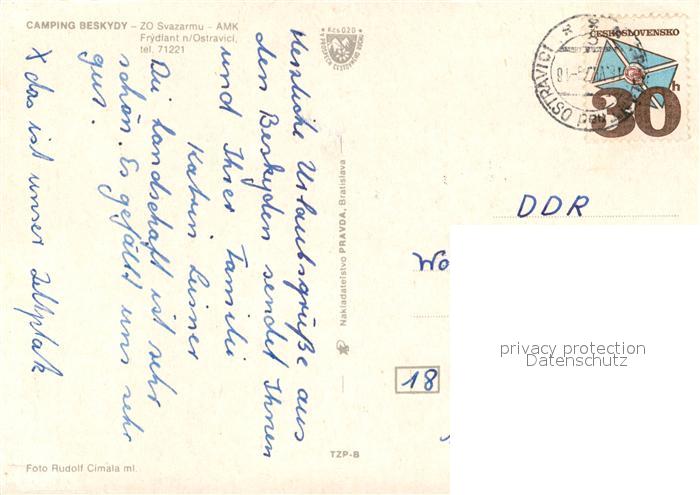 CAMPING BESKYDY – ZO Svazarmu - AMK
Frýdlant n/Ostravicí,
tel. 71221
Kčs 0,20
Herzliche Urlaubsgrüße aus
den Beskyden sendet Ihnen
und Ihrer Familie
Katrin
Die Landschaft ist sehr
schön. Es gefällt uns sehr
gut.
X das ist unser Zeltplatz
Nakladatelstvo PRAVDA, Bratislava
TZP-B
Foto Rudolf Cimala ml.
ČESKOSLOVENSKO
30h
nad OSTRAVICÍ
DDR
Wo
18
privacy protection
Datenschutz